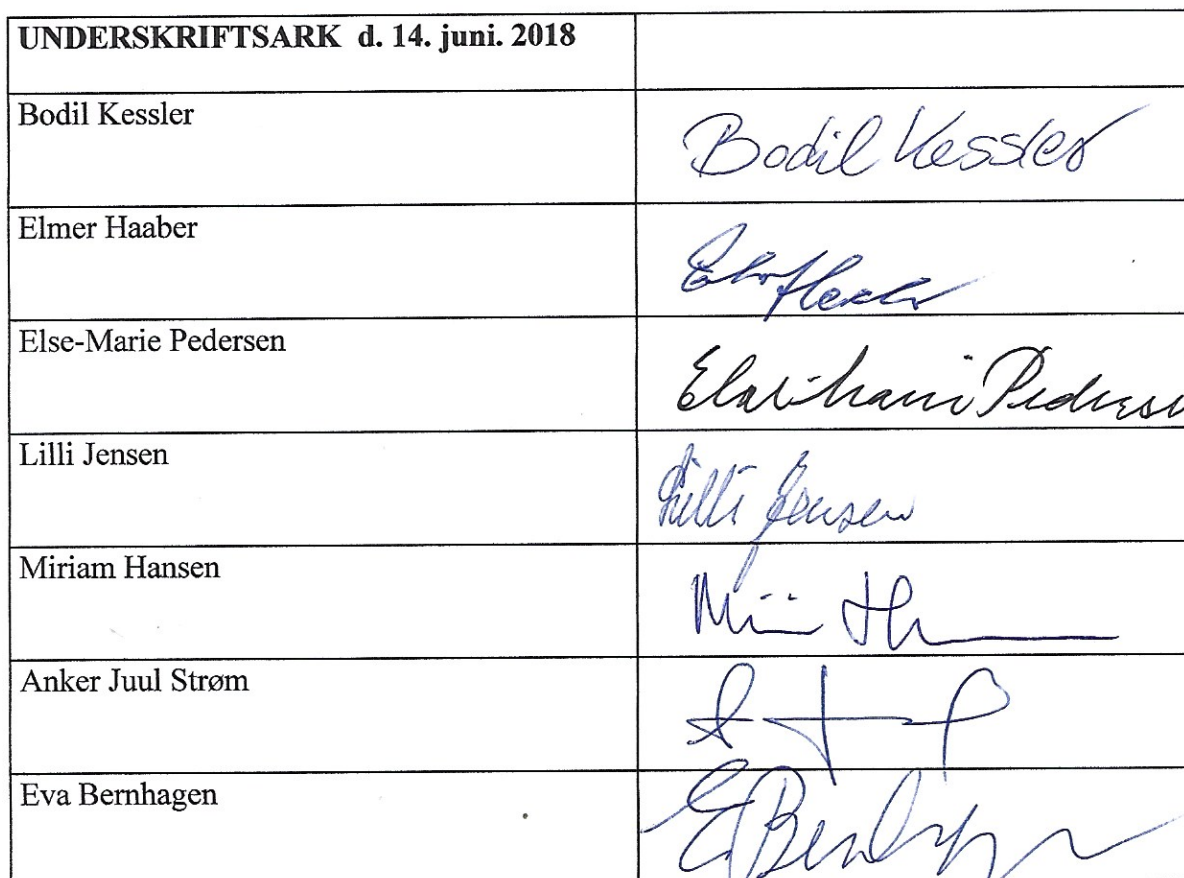 UNDERSKRIFTSARK d. 14. juni. 2018
Bodil Kessler
Bodil Kessler
Elmer Haaber
Else-Marie Pedersen
Pedersen
Lilli Jensen
Lilli Jensen
Miriam Hansen
Anker Juul Strøm
Eva Bernhagen